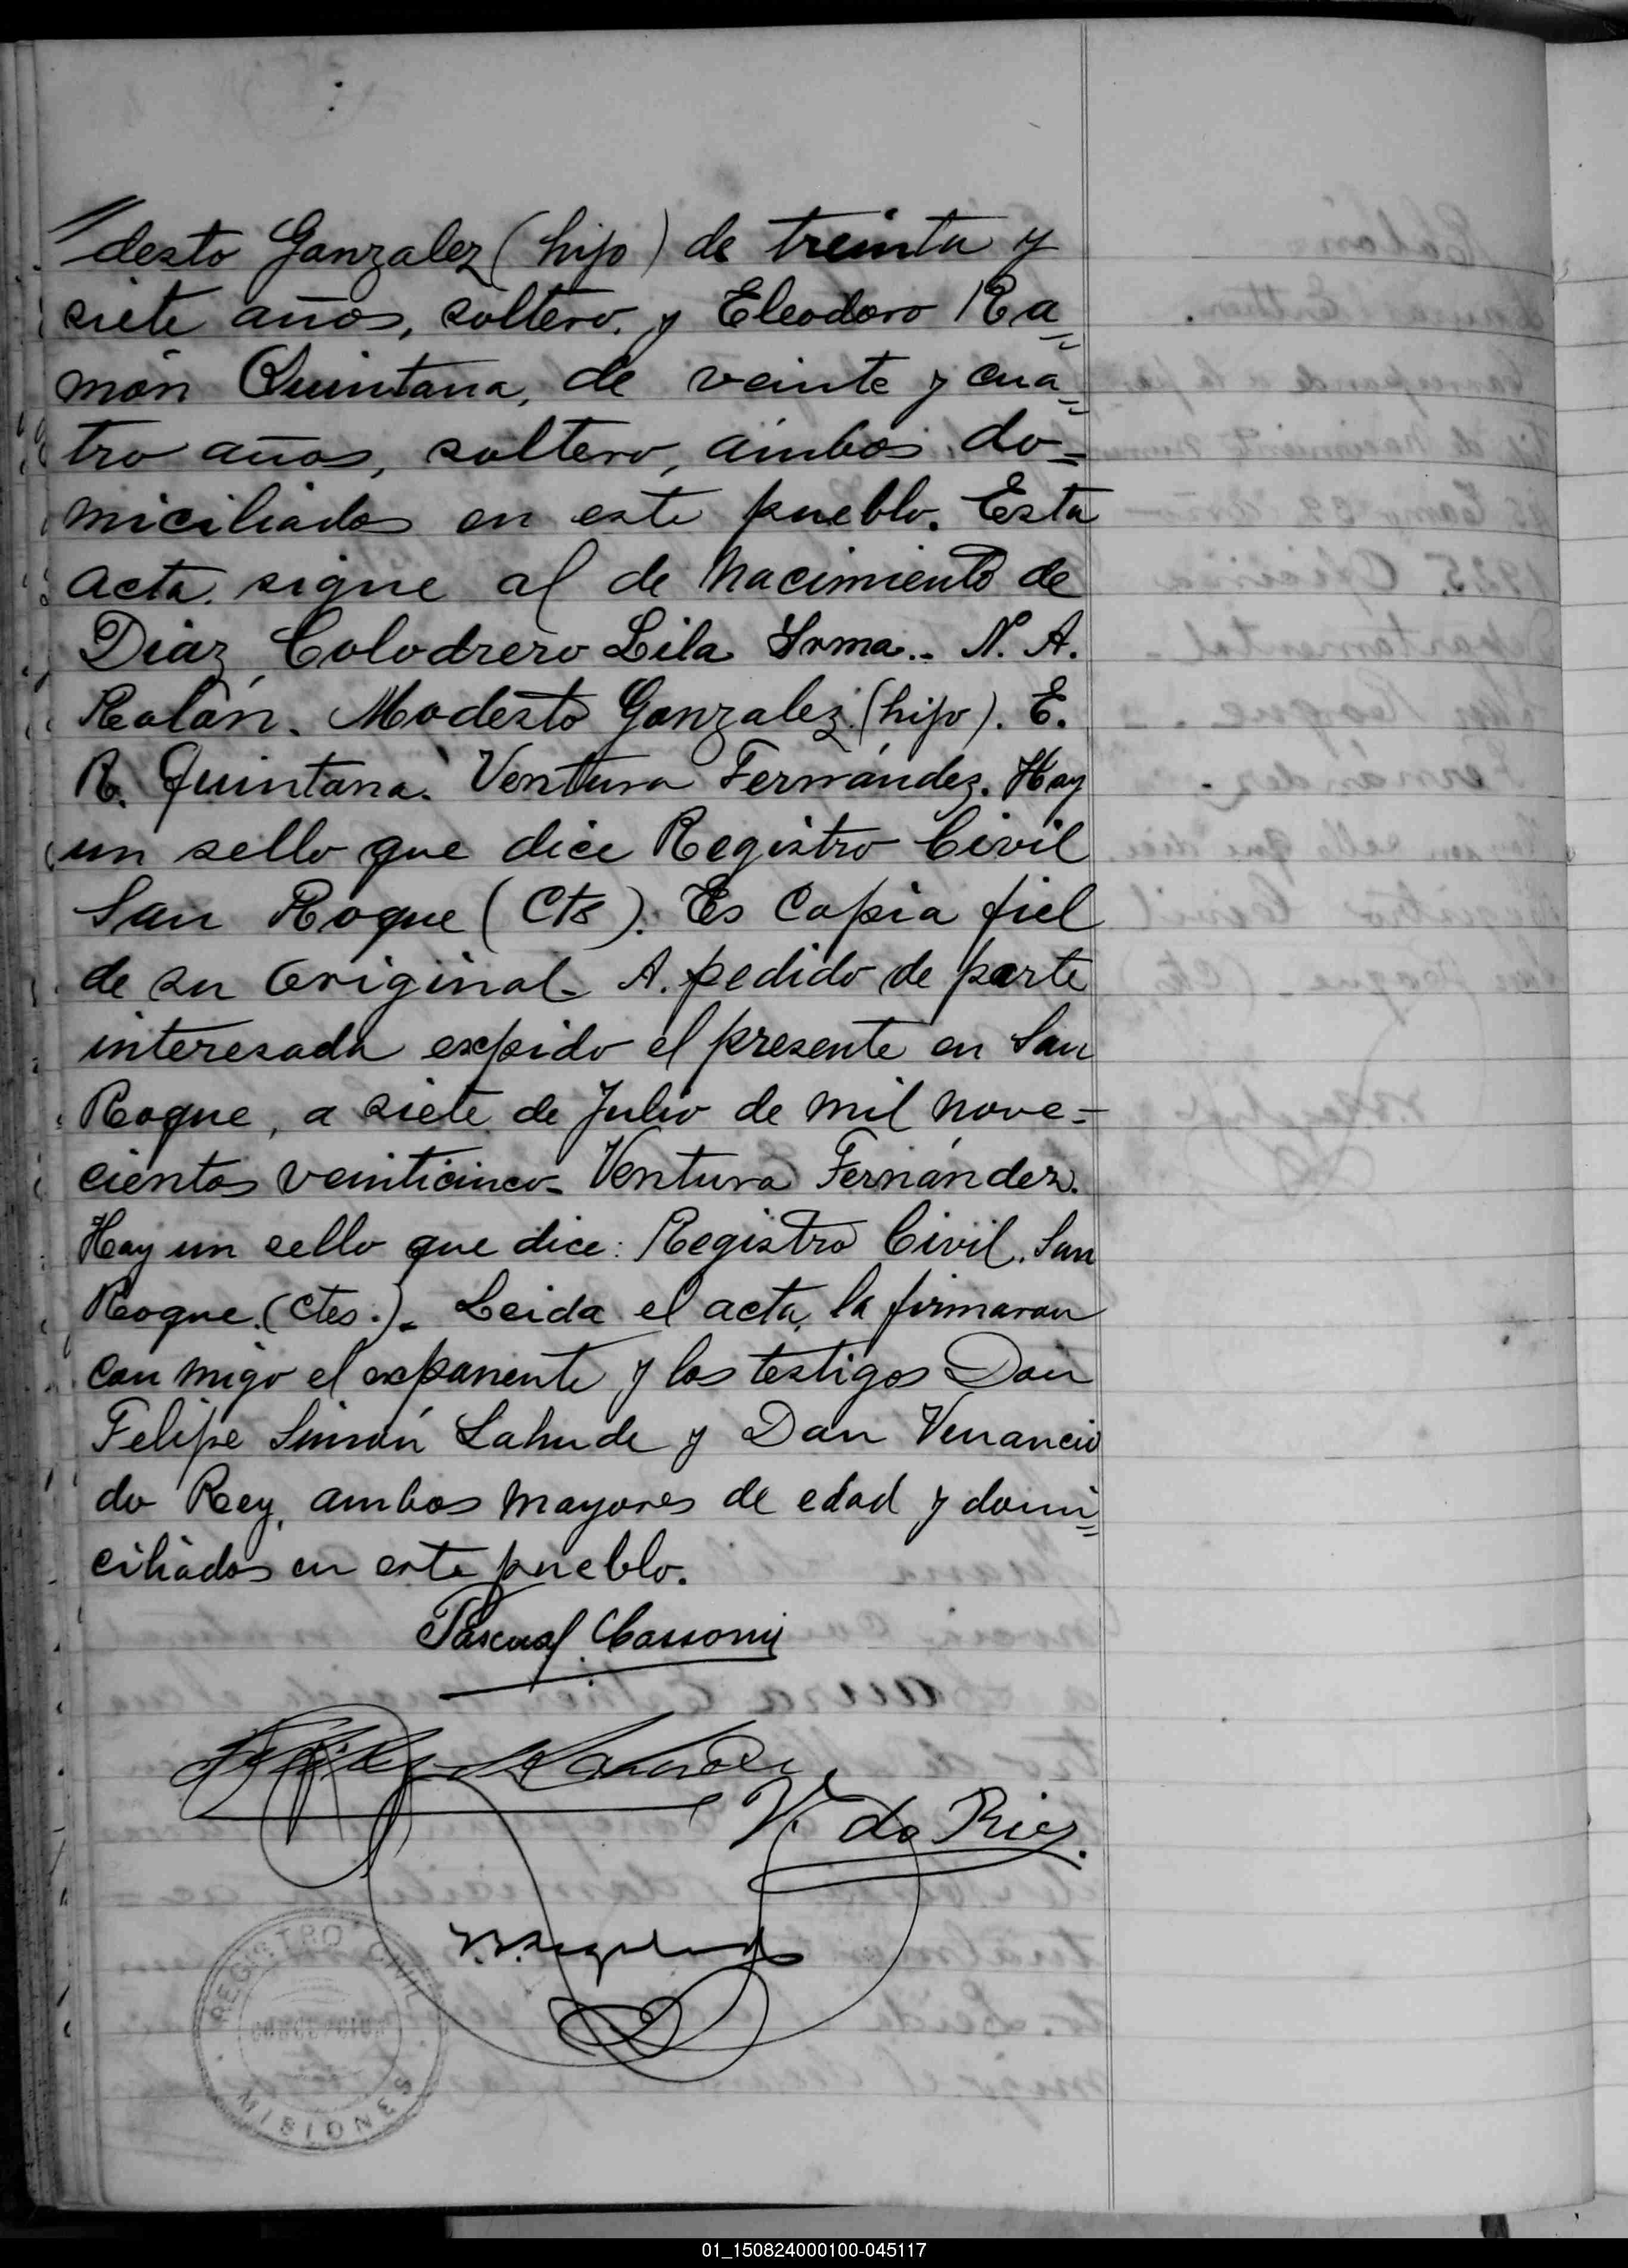 // desto Gonzalez (hijo) de treinta y
siete años, soltero, y Eleodoro Ra=
món Quintana, de veinte y cua=
tro años, soltero, ambos do=
miciliados en este pueblo. Esta
acta sigue al de nacimiento de
Diaz Colodrero Lila Irma.- N. A.
Rolón. Modesto Gonzalez (hijo). E.
R. Quintana. Ventura Fernández. Hay
un sello que dice Registro Civil
San Roque (Cts). Es Copia fiel
de su original. A pedido de parte
interesada expido el presente en San
Roque, a siete de Julio de mil nove=
cientos veinticinco- Ventura Fernández.
Hay un sello que dice: Registro Civil. San
Roque. (Ctes.)- Leida el acta, la firmaron
con migo el exponente y los testigos Don
Felipe Simón Lahude y Don Venancio
do Rey, ambos mayores de edad y domi=
ciliados en este pueblo.
Pascual
V. do Rey.
REGISTRO CIVIL
CONCEPCION
MISIONES
01_150824000100-045117